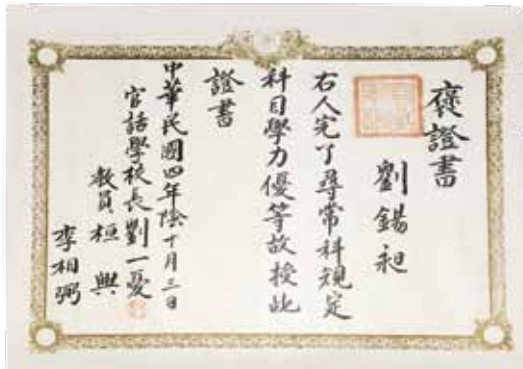 褒證書
劉錫昶
右人完了尋常科規定
科目學力優等故授此
證書
中華民國四年陰十月三日
官話學校長劉一憂
教員桓興
李相弼